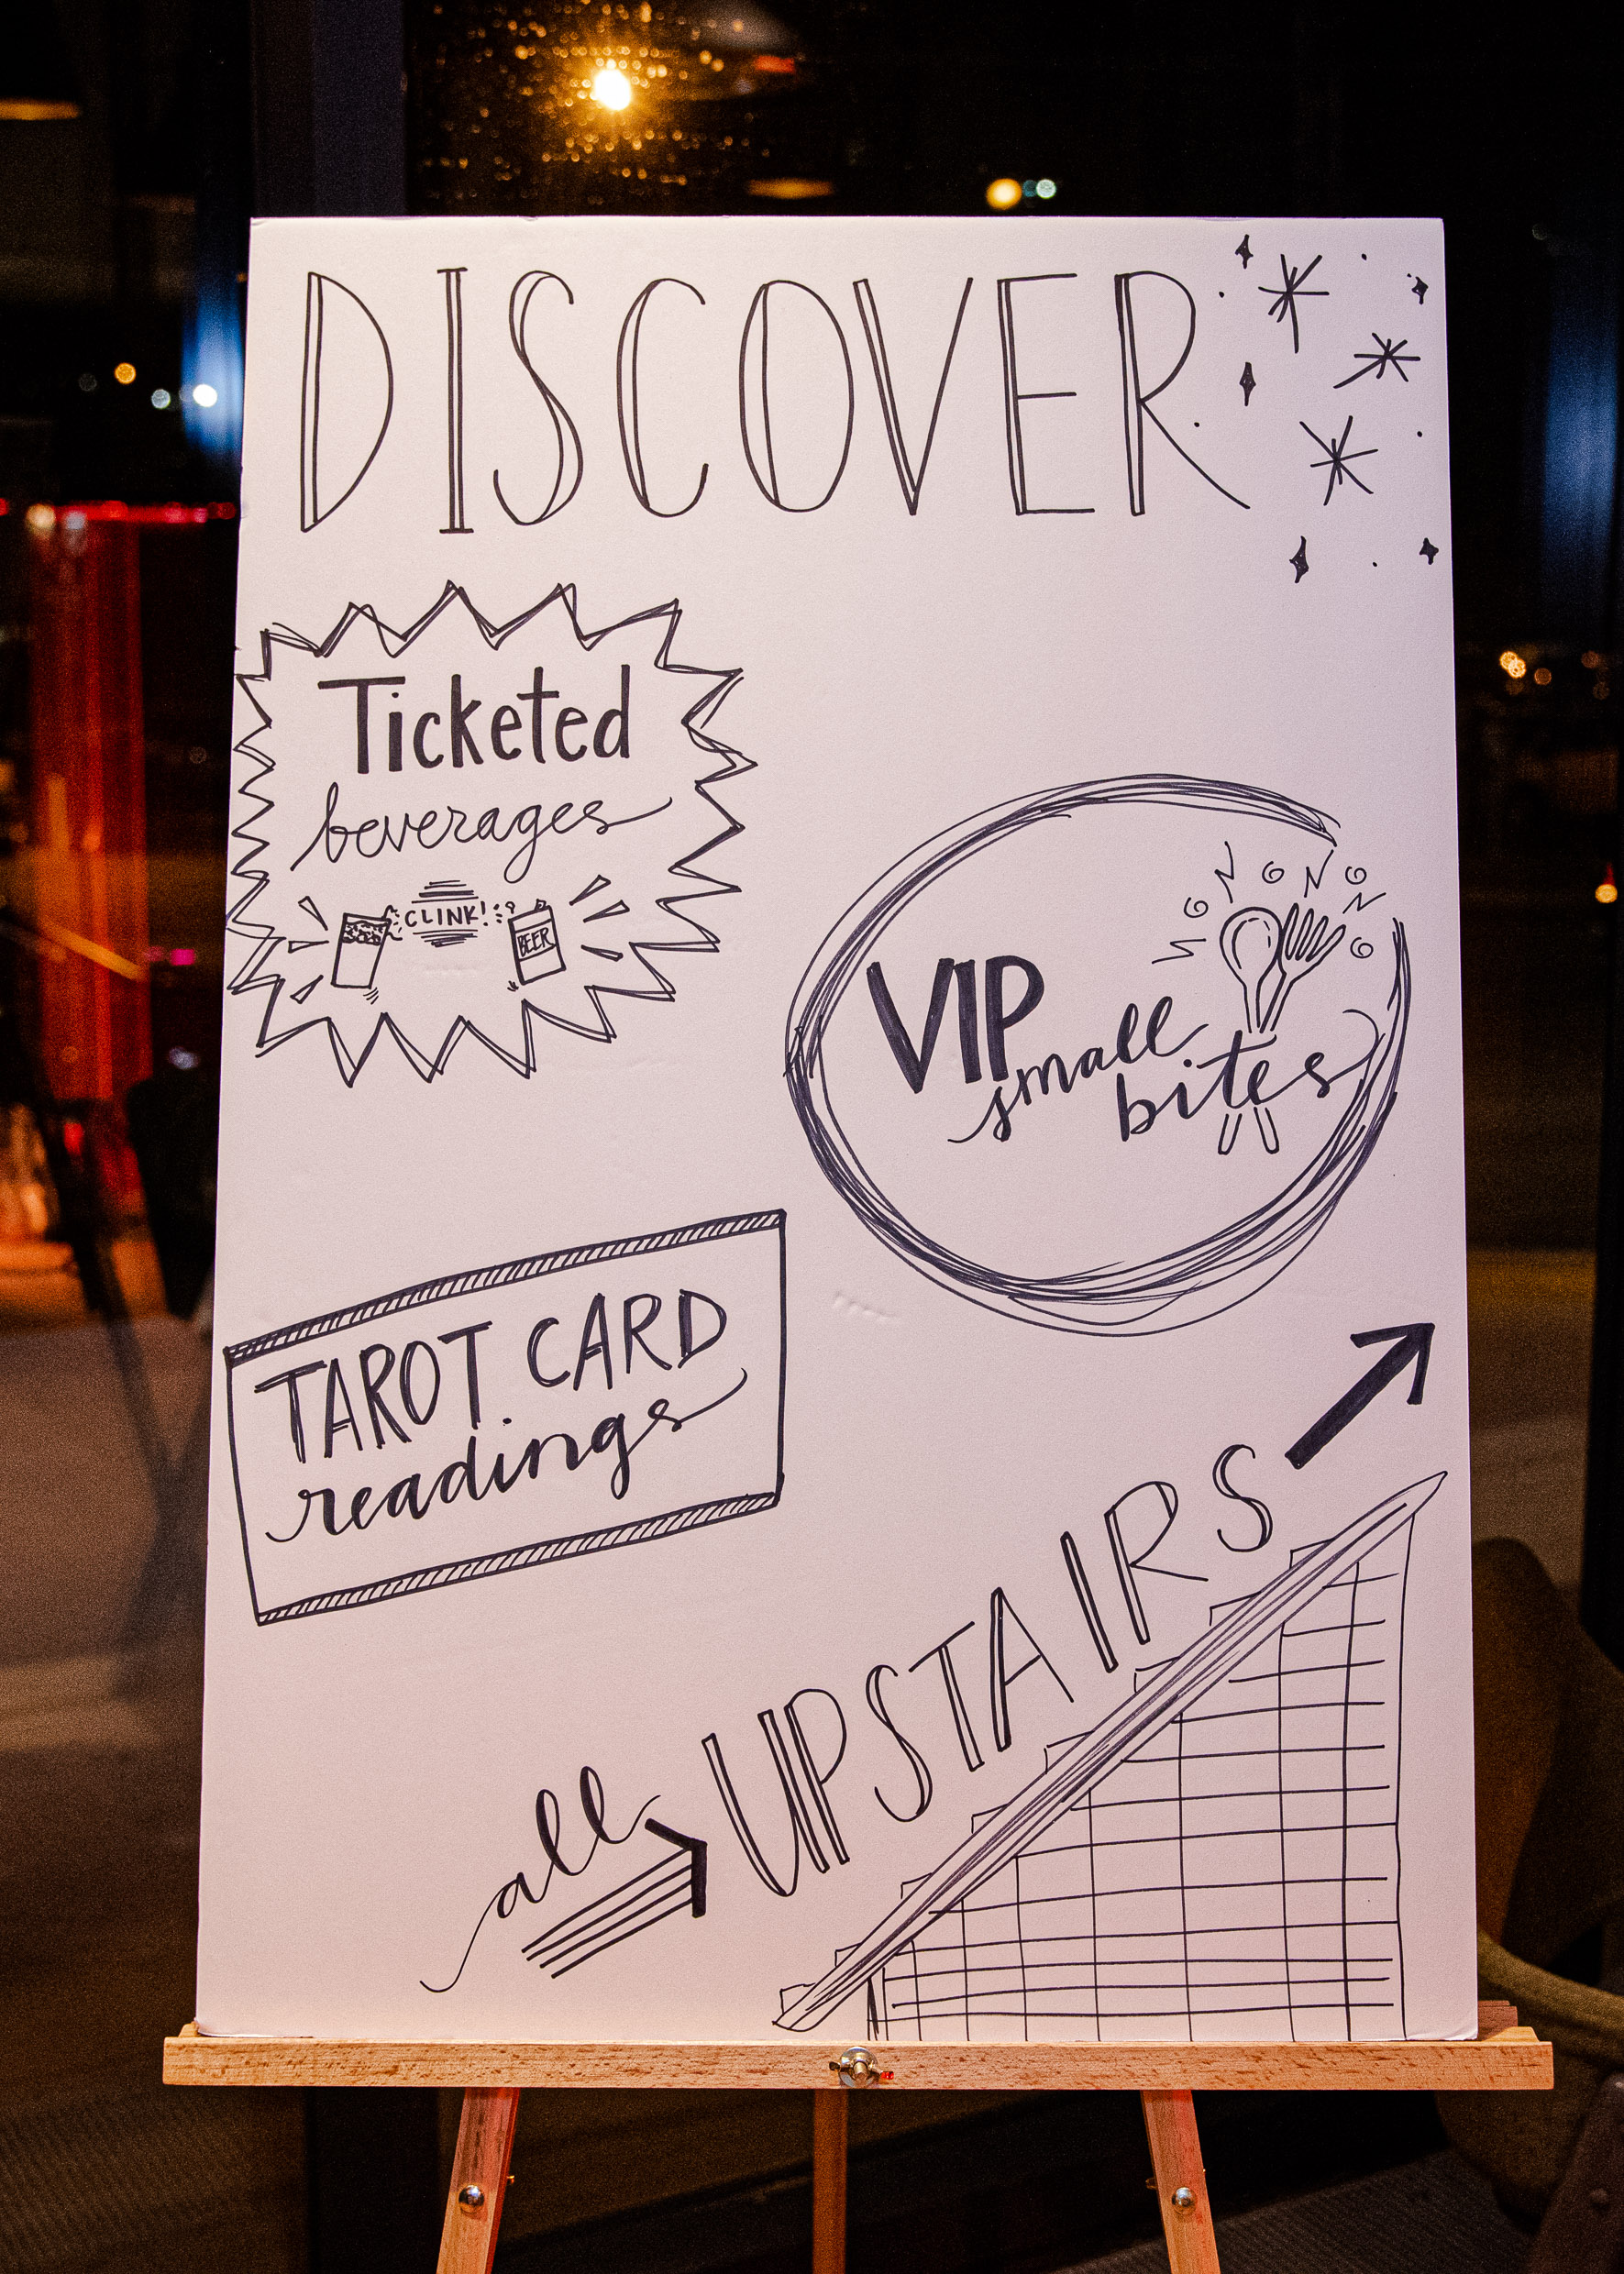 DISCOVER
Ticketed
beverages
CLINK!
BEER
VIP
small
bites
TAROT CARD
readings
all
UPSTAIRS